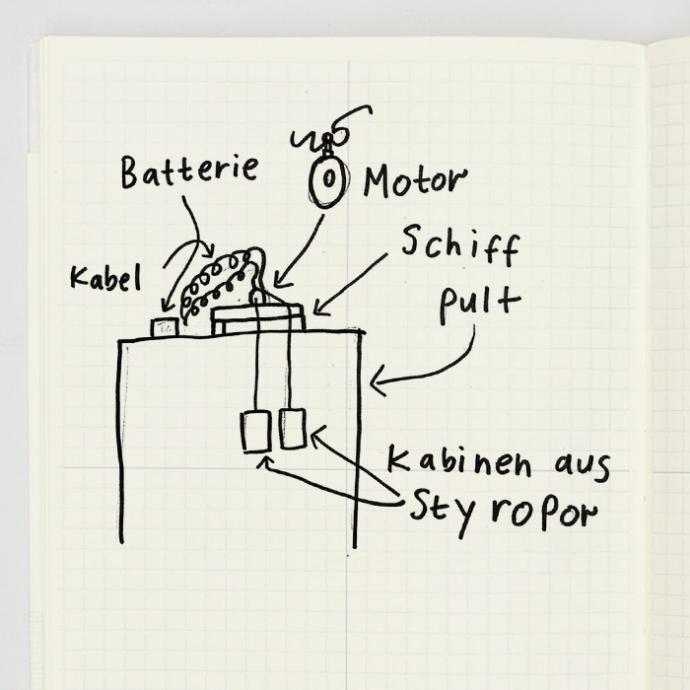 Batterie
Motor
Kabel
Schiff
pult
Kabinen aus
Styropor